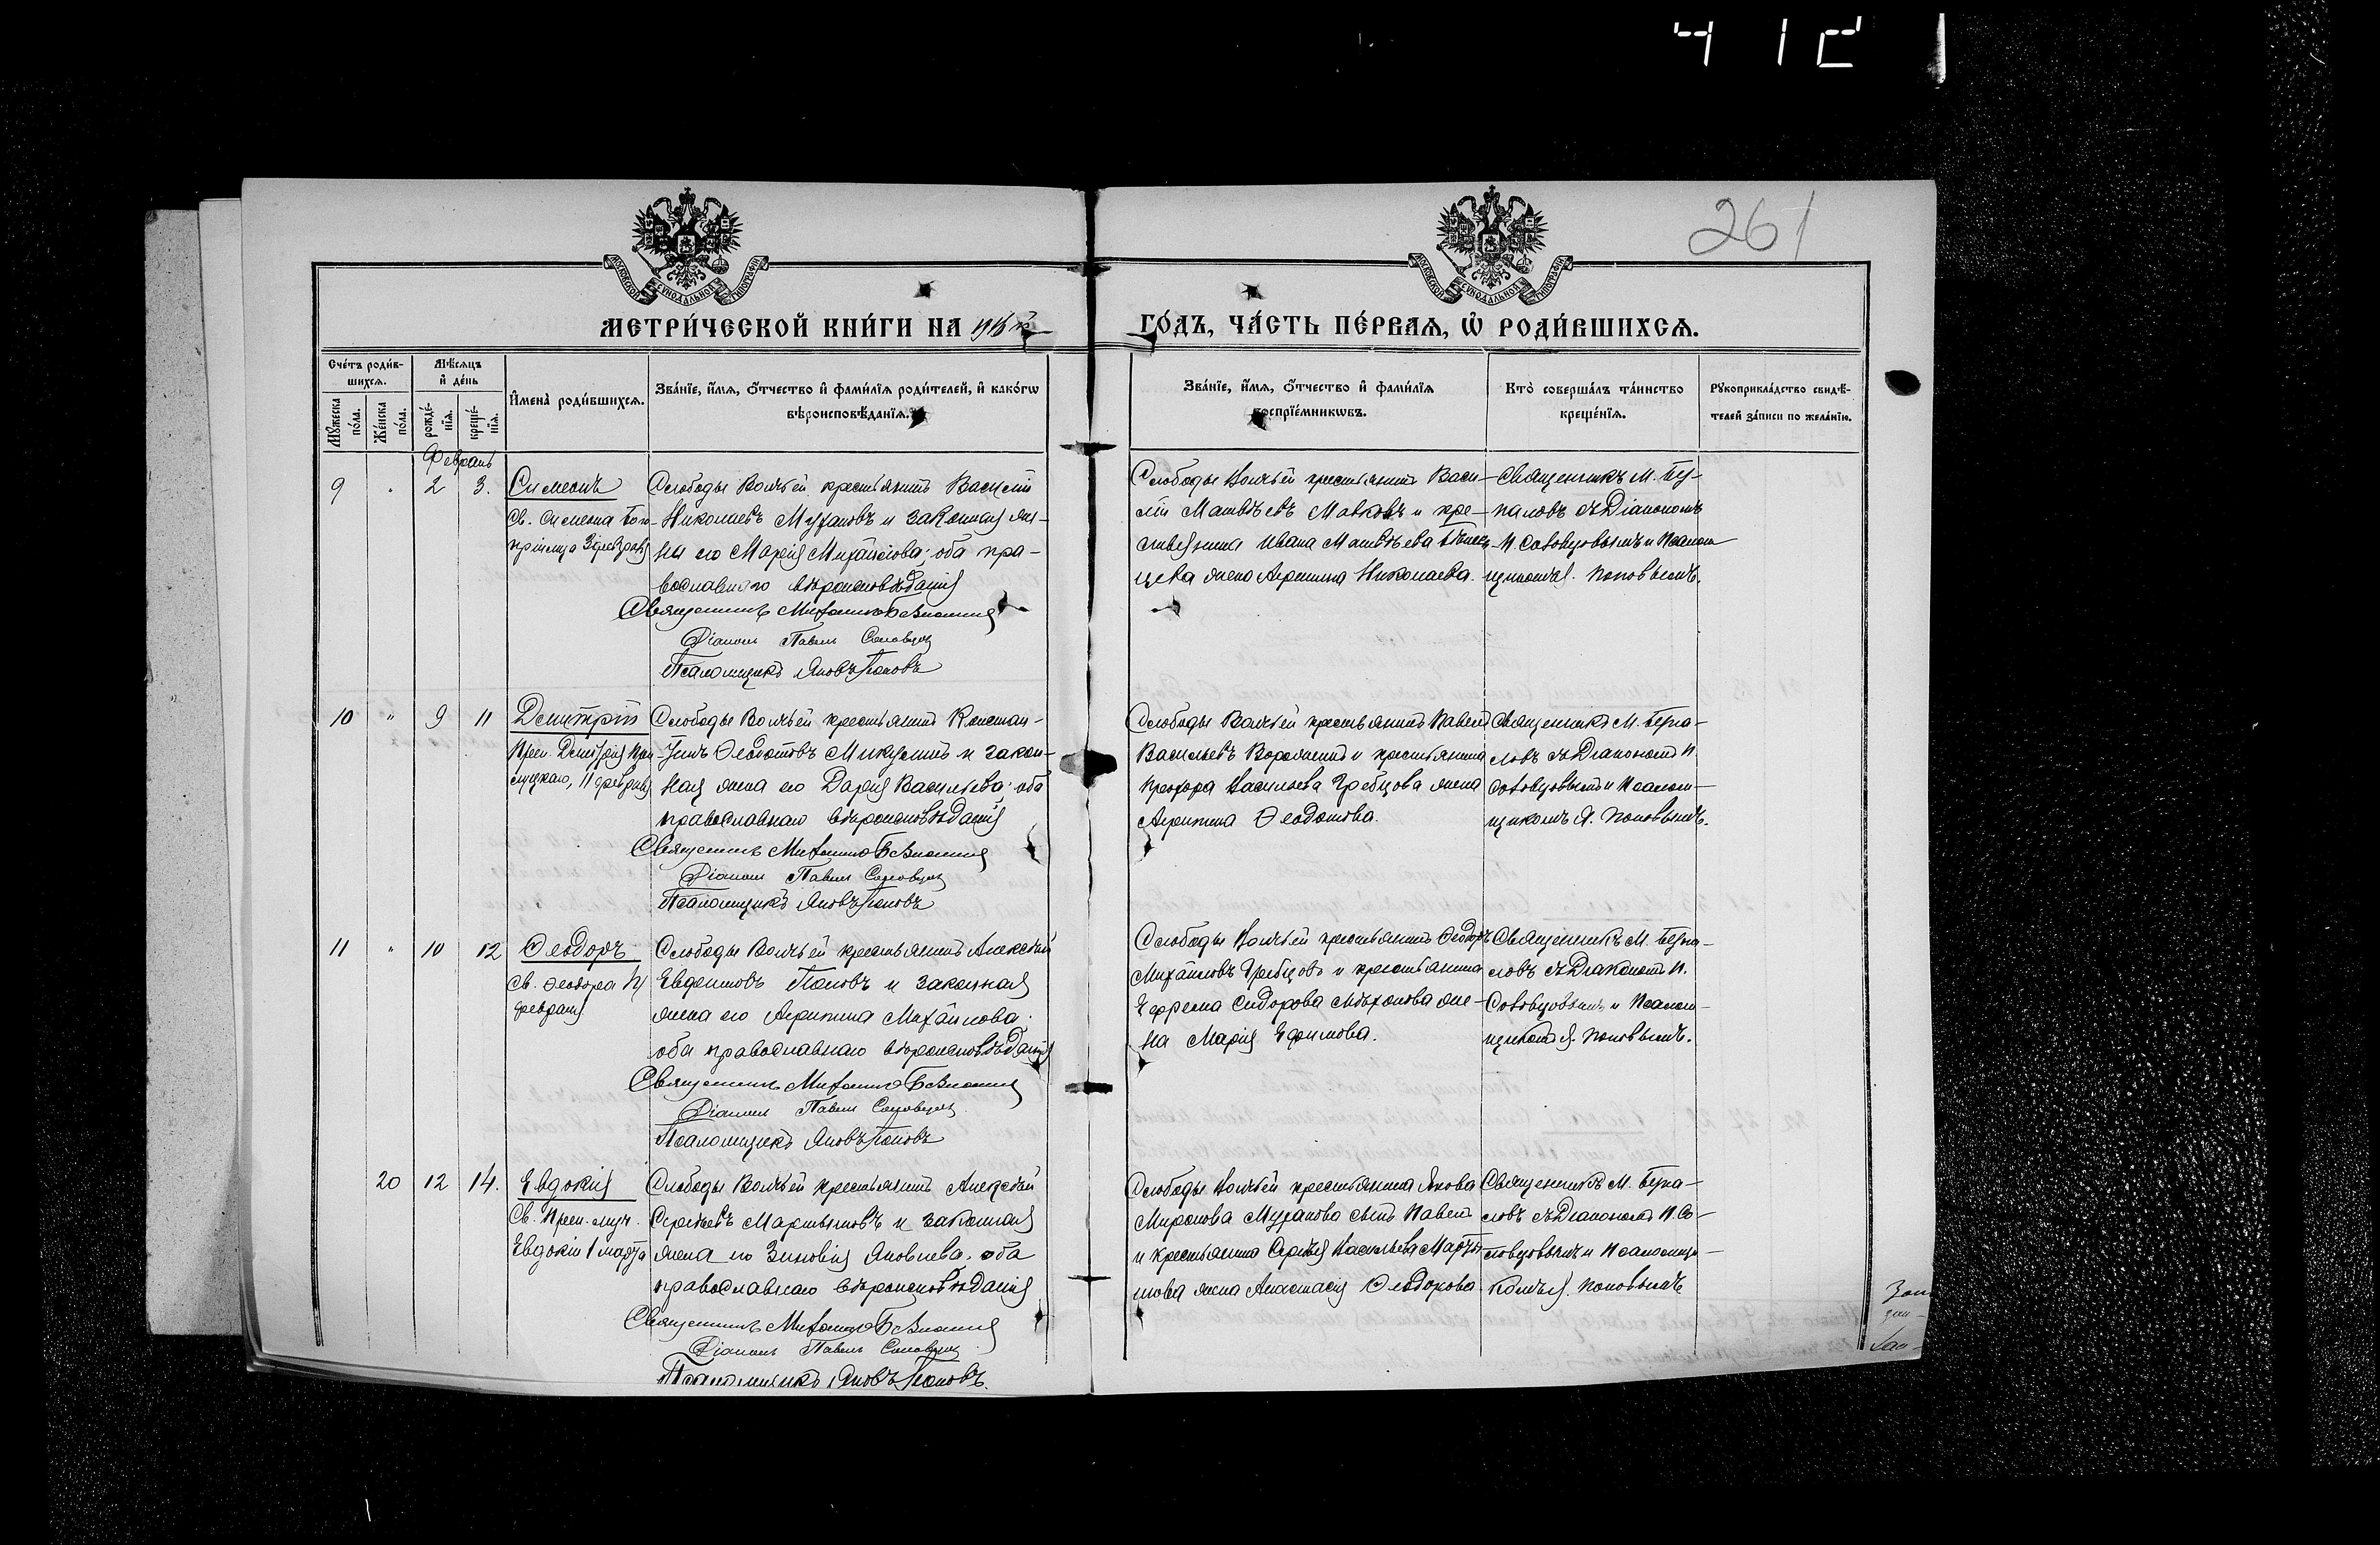 412
261
МЕТРИ́ЧЕСКОЙ КНИ́ГИ НА 1916 й ГО́ДЪ, ЧА́СТЬ ПЕ́РВАѦ, Ѡ҆ РОДИ́ВШИХСѦ.
Сче́тъ роди́в-
шихсѧ.
Мѣ́сѧцъ
и҆ де́нь
Мꙋ́жеска по́ла.
Же́нска по́ла.
рожде́-
нїѧ.
креще́-
нїѧ.
И҆мена̀ роди́вшихсѧ.
Зва́нїе, и҆́мѧ, ѻ҆́тчество и҆ фами́лїѧ роди́телей, и҆ како́гѡ
вѣроисповѣ́данїѧ.
Зва́нїе, и҆́мѧ, ѻ҆́тчество и҆ фами́лїѧ
воспрїе́мникѡвъ.
Кто̀ соверша́лъ та́инство
креще́нїѧ.
Рꙋкоприкла́дство свидѣ́-
телей за́писи по жела́нїю.
Февраль
9 " 2 3.
Симеонъ
Св. Симеона Бого-
пріимца 3 февраля
Слободы Волчьей крестьянинъ Василій
Николаевъ Мухановъ и законная же-
на его Марія Михайлова; оба пра-
вославнаго вѣроисповѣданія
Священникъ Михаилъ
Діаконъ Павелъ
Псаломщикъ Яковъ Поповъ
Слободы Волчьей крестьянинъ Васи-
лій Матвѣевъ Мавковъ и кре-
стьянина Ивана Матвѣева
цева жена Агрипина Николаева.
Священникъ М.
съ Діакономъ
и Псалом
щикомъ Я. Поповымъ.
10 " 9 11
Димитрій
Преп. Димитрія При-
луцкаго, 11 февраля
Слободы Волчьей крестьянинъ Констан-
тинъ Ѳеодотовъ Микулинъ и закон-
ная жена его Дарія Васильева; оба
православнаго вѣроисповѣданія
Священникъ Михаилъ
Діаконъ Павелъ
Псаломщикъ Яковъ Поповъ
Слободы Волчьей крестьянинъ Павелъ
Васильевъ и крестьянина
Прохора Васильева Гребцова жена
Агрипина Ѳеодотова.
Священникъ М.
съ Діакономъ П.
и Псалом-
щикомъ Я. Поповымъ.
11 " 10 12
Ѳеодоръ
Св. Ѳеодора
февраля
Слободы Волчьей крестьянинъ Алексѣй
Евдокимовъ Поповъ и законная
жена его Агрипина Михайлова;
оба православнаго вѣроисповѣданія
Священникъ Михаилъ
Діаконъ Павелъ
Псаломщикъ Яковъ Поповъ
Слободы Волчьей крестьянинъ Ѳеодоръ
Михайловъ Гребцовъ и крестьянина
Ефрема Сидорова же-
на Марія Ефимова.
Священникъ М.
съ Діакономъ П.
и Псалом-
щикомъ Я. Поповымъ.
20 12 14.
Евдокія
Св. Преп. муч.
Евдокіи 1 марта
Слободы Волчьей крестьянинъ Алексѣй
Сергѣевъ Мартыновъ и законная
жена его Зиновія Яковлева; оба
православнаго вѣроисповѣданія
Священникъ Михаилъ
Діаконъ Павелъ
Псаломщикъ Яковъ Поповъ.
Слободы Волчьей крестьянина Якова
Миронова Муханова сынъ Павелъ
и крестьянина Сергѣя Васильева Марты-
нова жена Анастасія Ѳеодорова
Священникъ М.
съ Діакономъ П. Со-
и Псаломщи-
комъ Я. Поповымъ